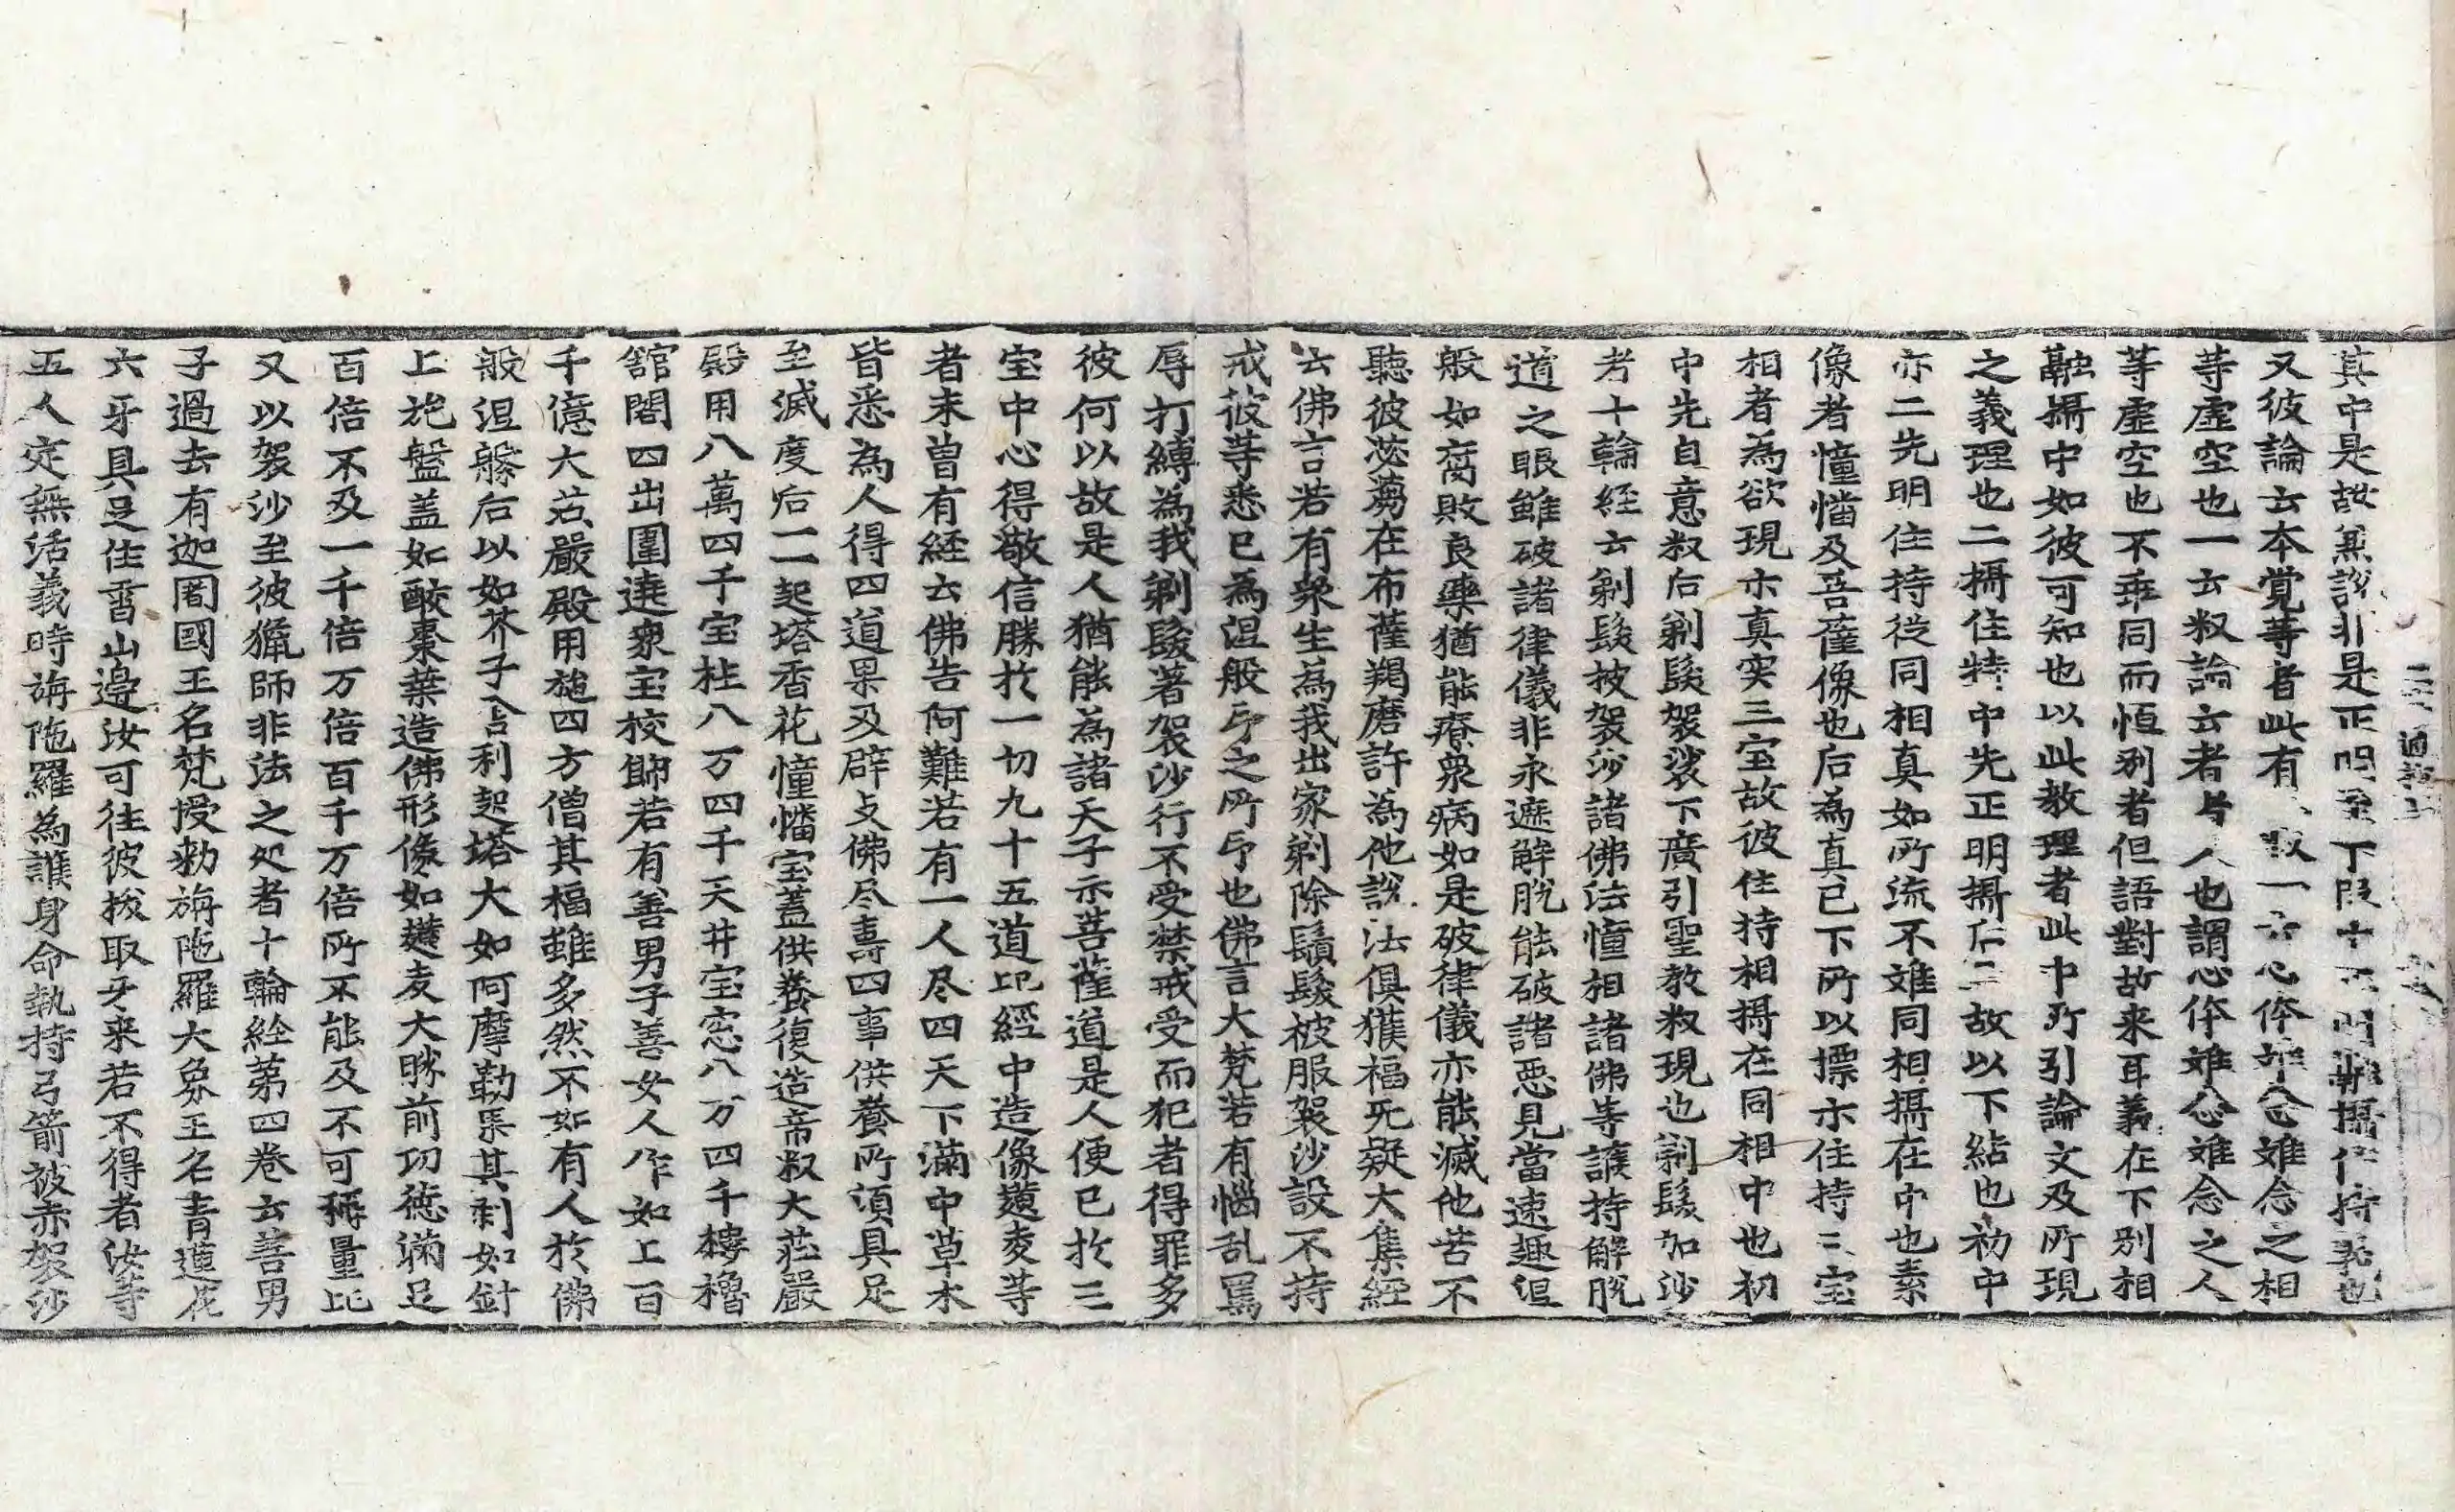 其中是故無說非是正明至下段十正明兼攝住持義也
又彼論云本覚等者此有叙一云心体離念離念之相
等虛空也一云叙論云者者人也謂心体離念離念之人
等虛空也不乖同而恒別者但語對故来耳義在下別相
融攝中如彼可知也以此教理者此中所引論文及所現
之義理也二攝住持中先正明攝后二故以下結也初中
亦二先明住持從同相真如所流不难同相攝在中也素
像者憧幡及菩薩像也后為真已下所以摽亦住持三宝
相者為欲現亦真実三宝故彼住持相攝在同相中也初
中先自意叙后剃䯻袈裟下廣引聖教叙現也剃䯻加沙
者十輪経云剃䯻披袈沙諸佛法憧相諸佛等護持解脫
道之眼雖破諸律儀非永遮解脫能破諸惡見當速趣涅
般如腐敗良藥猶能療衆病如是破律儀亦能滅他苦不
聽彼苾蒭在布薩羯磨許為他說法俱獲福旡疑大集経
云佛言若有衆生為我出家剃除鬚䯻被服袈沙設不持
戒彼等悉已為涅般印之所印也佛言大梵若有惱乱罵
辱打縛為我剃䯻著袈沙行不受禁戒受而犯者得罪多
彼何以故是人猶能為諸天子示菩薩道是人便已於三
宝中心得敬信勝於一切九十五道比經中造像𪍿麦等
者未曾有経云佛告阿難若有一人尽四天下滿中草木
皆悉為人得四道果及辟支佛尽壽四事供養所湏具足
至滅度后一一起塔香花憧幡宝蓋供養復造帝叙大莊嚴
殿用八萬四千宝柱八万四千天井宝窓八万四千樓櫓
舘閣四出圍遶衆宝校飾若有善男子善女人作如上百
千億大莊嚴殿用施四方僧其福雖多然不如有人於佛
般涅般后以如芥子舍利起塔大如阿摩勒果其刹如針
上施盤盖如酸棗葉造佛形像如𪍿麦大勝前功德滿足
百倍不及一千倍万倍百千万倍所不能及不可稱量比
又以袈沙至彼獵師非法之処者十輪経第四卷云善男
子過去有迦闍國王名梵授勅旃陁羅大象王名青蓮花
六牙具足住雪山邊汝可往彼拔取牙来若不得者汝等
五人定無活義時旃陁羅為護身命執持弓箭被赤袈沙